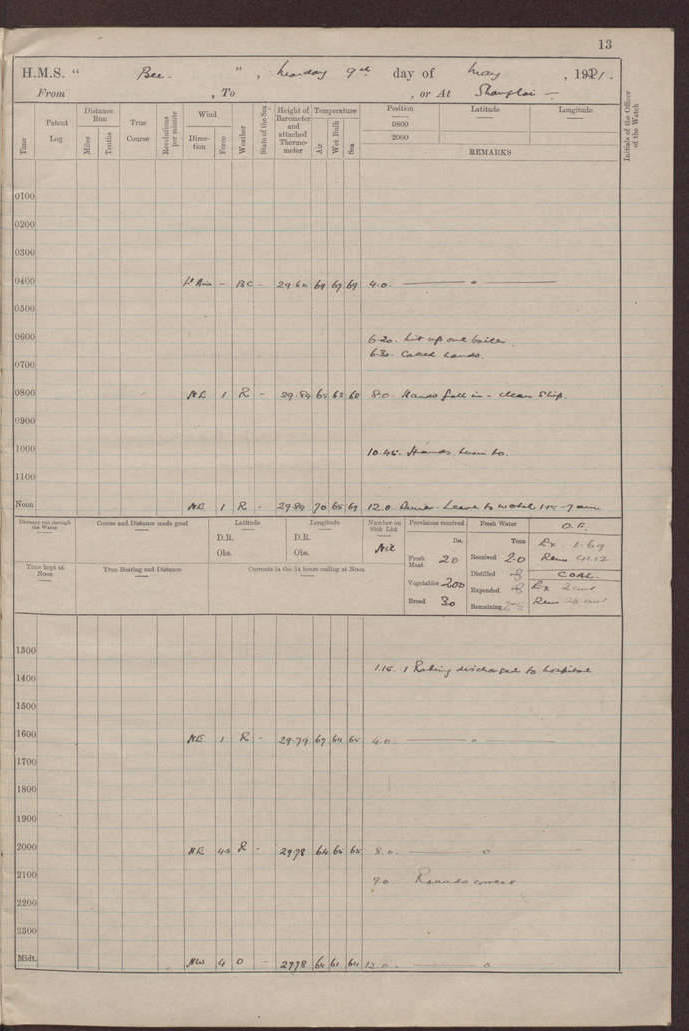 13
H.M.S. " Bee. ", Monday 9th day of May, 1921.
From , To , or At Shanghai —
Time
Patent Log
Distance Run
Miles
Tenths
True Course
Revolutions per minute
Wind
Direction
Force
Weather
State of the Sea
Height of Barometer and attached Thermometer
Temperature
Air
Wet Bulb
Sea
Position Latitude Longitude
0800
2000
REMARKS
Initials of the Officer of the Watch
0100
0200
0300
0400 Lt Airs - BC - 29.80 69 67 69 4.0. — " —
0500
0600 6.20. Lit up one boiler.
6.30. Called hands.
0700
0800 NE 1 R - 29.84 65 62 68 8.0. Hands fall in - clean ship.
0900
1000 10.45. Hands turn to.
1100
Noon NE 1 R - 29.84 70 65 69 12.0 Dinner. Leave to watch
Distance run through the Water
Course and Distance made good
Latitude
D.R.
Obs.
Longitude
D.R.
Obs.
Number on Sick List
Nil
Provisions received
lbs.
Fresh Meat 20
Vegetables 200
Bread 30
Fresh Water
Tons
Received 20
Distilled
Expended
Remaining
O.F.
Ex 1.69
Rem
COAL
Ex 2 cwt
Rem
Time kept at Noon
True Bearing and Distance
Currents in the 24 hours ending at Noon
1300
1.15. 1 Rating discharged to hospital
1400
1500
1600 NE 1 R - 29.79 67 64 65 4.0. — " —
1700
1800
1900
2000 NE R - 29.78 64 8.0. — " —
2100 9.0 Rounds correct
2200
2300
Midt. NW 4 O - 29.78 61 64 12.0. — " —